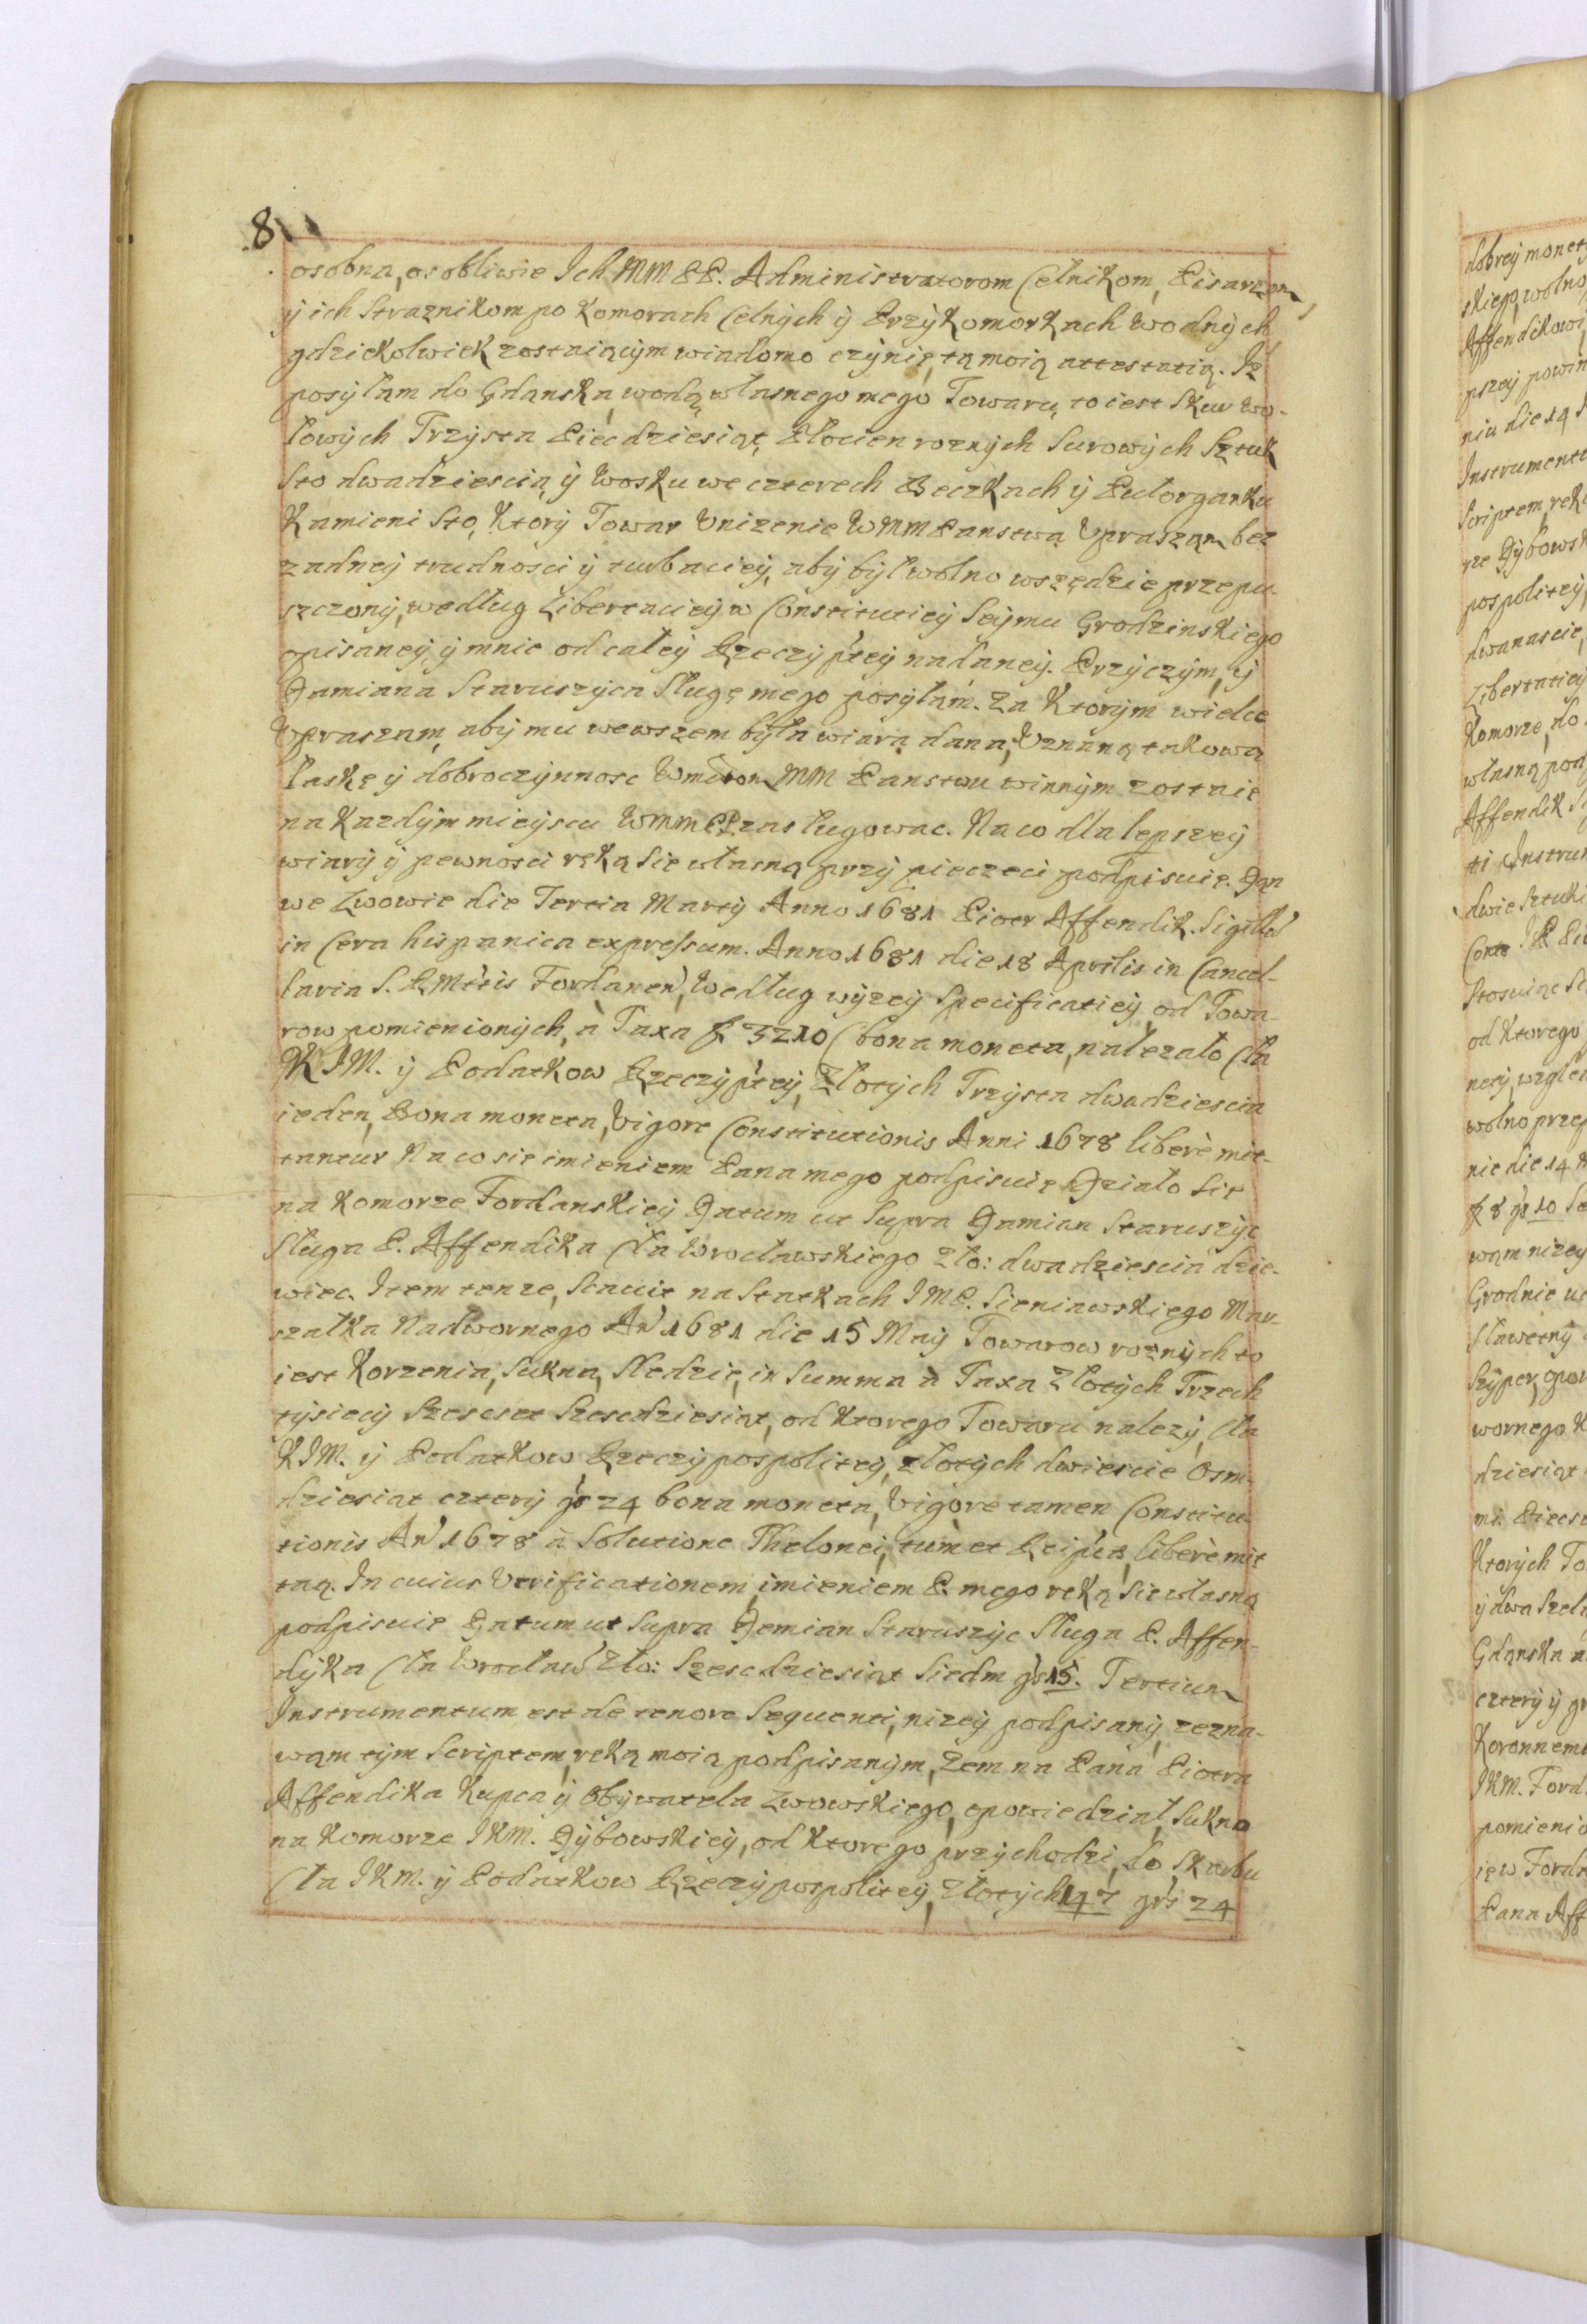 8
osobna, osobliwie Ich MM PP. Administratorom Celnikom, Pisarzom,
ÿ ich Straznikom po Komorach Celnÿch ÿ Przÿkomorkach Wodnÿch
gdziekolwiek zostaiącÿm wiadomo czÿnię tą moią attestatią. Iz
posÿłam do Gdanska, wodą własnego mego Towaru, to iest Skur Wo-
łowÿch Trzÿsta Pięcdziesiąt, Płocien roznÿch Surowÿch Sztuk
Sto dwadziescia, ÿ Wosku we czterech Beczkach ÿ Putorganku
Kamieni Sto, Ktorÿ Towar Vnizenie WMM Panstwa Vpraszam bez
zadneÿ trudnosci ÿ turbacieÿ, abÿ bÿł wolno wszędzie przepu-
szczonÿ, według Libertacieÿ w Constitutieÿ Seÿmu Grodzinskiego
opisaneÿ, ÿ mnie od całeÿ Rzeczÿ pteÿ nadaneÿ. Przÿczÿm, ÿ
Damiana Staruszÿca Sługę mego posÿłam. Za Ktorÿm wielce
Vpraszam, abÿ mu wewszem bÿła wiara dana, Vznaną takową
łaskę ÿ dobroczÿnnosc Wmciom MM Panstwu winnÿm zostaię
na Kazdÿm mieÿscu WMM PP zasługowac. Na co dla lepszeÿ
wiarÿ ÿ pewnosci ręką Się własną przÿ pieczęci podpisuię. Dan
we Lwowie die Tertia Martÿ Anno 1681 Piotr Affendik. Sigillũ
in Cera hispanica expressum. Anno 1681 die 18 Aprilis in Cancel-
laria S. R Mttis Fordanen, Według wÿzeÿ Specificatieÿ od Towa-
row pomienionÿch, à Taxa f 3210 (bona moneta, nalezało Cła
K IM. ÿ Podatkow Rzeczÿ pteÿ, Złotÿch Trzÿsta dwadziescia
ieden, Bona moneta, Vigore Constitutionis Anni 1678 liberè mit-
tantur Na co się imieniem Pana mego podpisuię Działo Się
na Komorze Fordanskieÿ Datum ut Supra Damian Staruszÿc
Sługa P. Affendika Cła Wrocławskiego Zło: dwadziescia dzie-
wiec. Item tenze, Stawił na Statkach IMP. Sieniawskiego Mar-
szałka Nadwornego An 1681 die 15 Maÿ Towarow roznÿch to
iest Korzenia, Sukna, Sledzie, in Summa à Taxa Złotÿch Trzech
tÿsiecÿ Szescset Szescdziesiąt, od Ktorego Towaru nalezÿ Cła
KIM. ÿ Podatkow Rzeczÿ pospoliteÿ, złotÿch dwiescie Osm-
dziesiat czterÿ gr 24 bona moneta, Vigore tamen Constitu-
tionis An 1678 à Solutione Thelonei, tum et Reiptæ, liberè mit
taq. In cuius Verificationem, imieniem P. mego ręką Się własną
podpisuie Datum ut Supra Demian Staruszÿc Sługa P. Affen-
dÿka Cła Wrocław Zło: Szescdziesiąt Siedm gr 15. Tertium
Instrumentum est de tenore Sequenti, nizeÿ podpisanÿ, zezna-
wam tÿm Scriptem, ręką moią podpisanÿm, Zem na Pana Piotra
Affendika Kupca ÿ Obÿwatela Lwowskiego, opowiedział, Sukno
na Komorze IKM. Dÿbowskieÿ, od Ktorego przÿchodzi, do Skarbu
Cła IKM. ÿ Podatkow Rzeczÿ pospoliteÿ, Złotÿch 147 grs 24
dobreÿ monet
skiego, wolno
Affendikowi
pszeÿ powin
nia die 14
Instrument
Scriptem, ręk
rze Dÿbowsk
pospoliteÿ,
dwanascie,
Libertatieÿ
Komorze, do
własną pod
Affendik S
ti Instrum
dwie Sztuki
Stosuiąc S
od Ktorego
neteÿ, wzglę
wolno przep
nie die 14
f 8 gr 10 Sc
wam nizeÿ
Grodnie uc
Sławetnÿ
Szÿper, opow
wornego K
dziesiąt
mi. Piecse
Ktorÿch To
ÿ dwa Szel
Gdanska n
czterÿ ÿ gr
Koronnem
IKM. Ford
pomienio
ię w Forda
Pana Aff